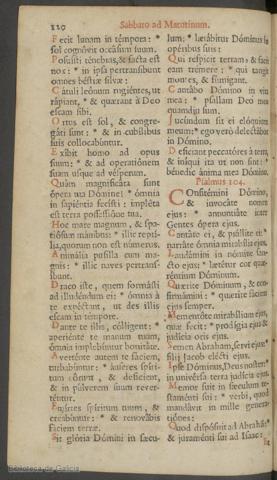 220 Sabbato ad Matutinum.
Fecit lunam in témpora: *
sol cognóvit occásum suum.
Posuísti ténebras, & facta est
nox: * in ipsa pertransíbunt
omnes béstiæ silvæ:
Cátuli leónum rugiéntes, ut
rápiant, * & quærant à Deo
escam sibi.
Ortus est sol, & congre-
gáti sunt: * & in cubílibus
suis collocabúntur.
Exíbit homo ad opus
suum: * & ad operatiónem
suam usque ad vésperum.
Quàm magnificáta sunt
ópera tua Dómine! * ómnia
in sapiéntia fecísti: impléta
est terra possessióne tua.
Hoc mare magnum, & spa-
tiósum mánibus: * illic reptí-
lia, quorum non est númerus.
Animália pusílla cum ma-
gnis: * illic naves pertransí-
bunt.
Draco iste, quem formásti
ad illudéndum ei: * ómnia à
te expéctant, ut des illis
escam in témpore.
Dante te illis, cólligent: *
aperiénte te manum tuam,
ómnia implebúntur bonitáte.
Averténte autem te fáciem,
turbabúntur: * áuferes spíri-
tum eórum, & defícient,
& in púlverem suum rever-
téntur.
Emíttes spíritum tuum, &
creabúntur: * & renovábis
fáciem terræ.
Sit glória Dómini in sæcu-
lum: * lætábitur Dóminus in
opéribus suis:
Qui réspicit terram, & facit
eam trémere: * qui tangit
montes, & fúmigant.
Cantábo Dómino in vita
mea: * psallam Deo meo
quamdiu sum.
Jucúndum sit ei elóquium
meum: * ego verò delectábor
in Dómino.
Defíciant peccatóres à terra,
& iníqui ita ut non sint: *
bénedic ánima mea Dómino.
Psalmus 104.
Confitémini Dómino,
& invocáte nomen
ejus: * annuntiáte inter
Gentes ópera ejus.
Cantáte ei, & psállite ei: *
narráte ómnia mirabília ejus.
Laudámini in nómine san-
cto ejus: * lætétur cor quæ-
réntium Dóminum.
Quærite Dóminum, & con-
firmámini: * quærite fáciem
ejus semper.
Mementóte mirabílium ejus,
quæ fecit: * prodígia ejus &
judícia oris ejus.
Semen Abraham, servi ejus: *
fílij Jacob elécti ejus.
Ipse Dóminus, Deus noster: *
in univérsa terra judícia ejus.
Memor fuit in sæculum te-
staménti sui: * verbi, quod
mandávit in mille genera-
tiónes:
Quod dispósuit ad Abraham: *
& juraménti sui ad Isaac:
Biblioteca de Galicia